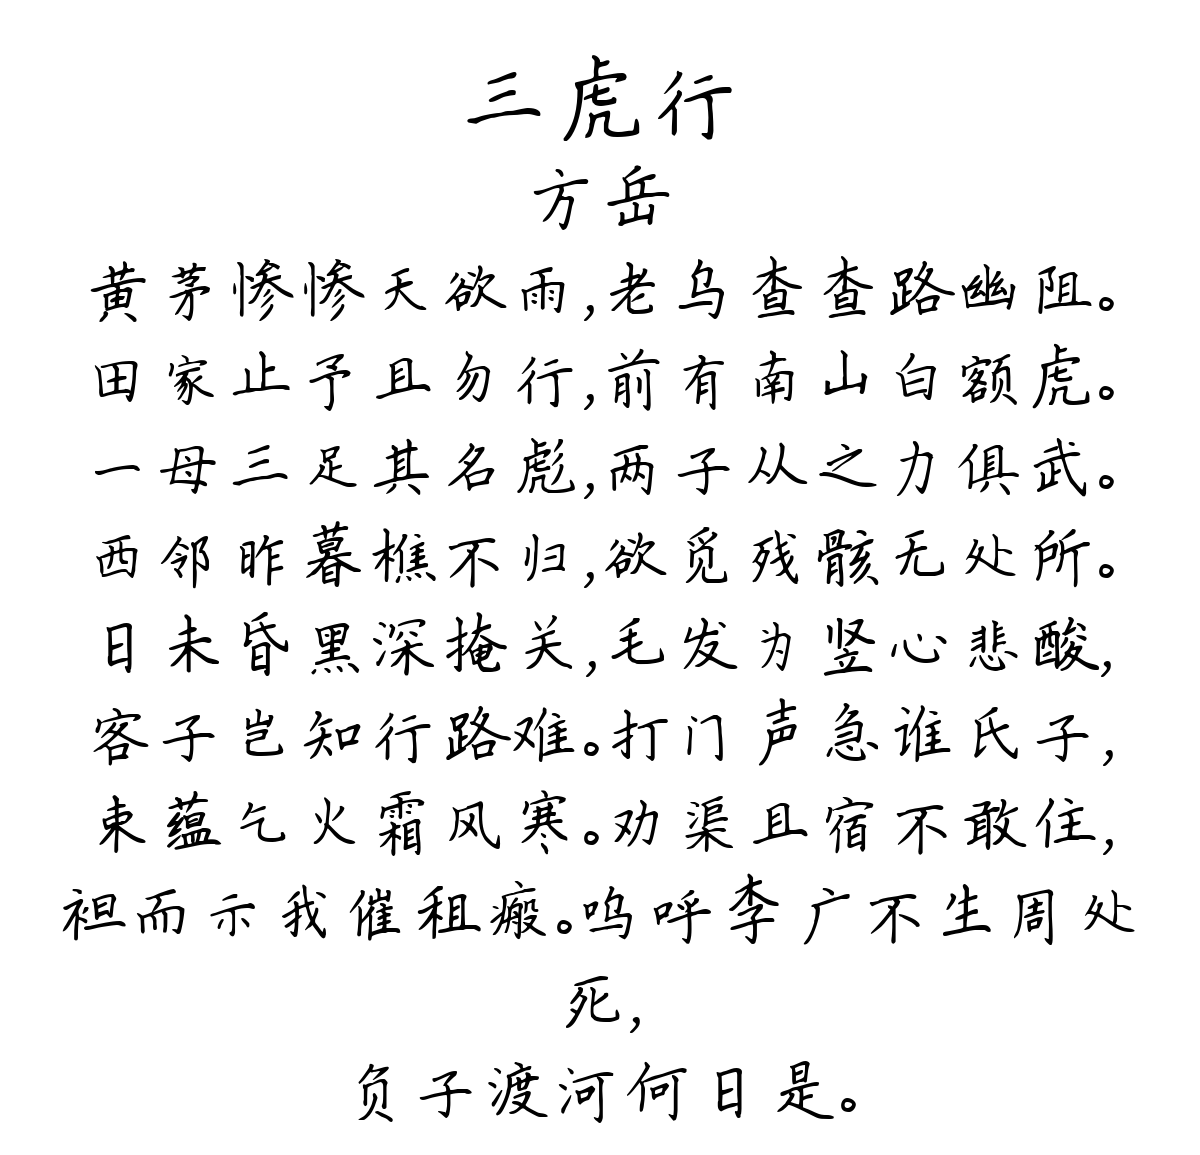 三虎行
方岳
黄茅惨惨天欲雨,老乌查查路幽阻。
田家止予且勿行,前有南山白额虎。
一母三足其名彪,两子从之力俱武。
西邻昨暮樵不归,欲觅残骸无处所。
日未昏黑深掩关,毛发为竖心悲酸,
客子岂知行路难。打门声急谁氏子,
束蕴乞火霜风寒。劝渠且宿不敢住,
袒而示我催租瘢。呜呼李广不生周处
死,
负子渡河何日是。